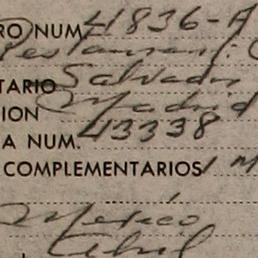 RO NUM. 41836-A
Restaurant
TARIO Salvador
ION Madrid
A NUM. 43338
COMPLEMENTARIOS 1 M
Mexico
Abril